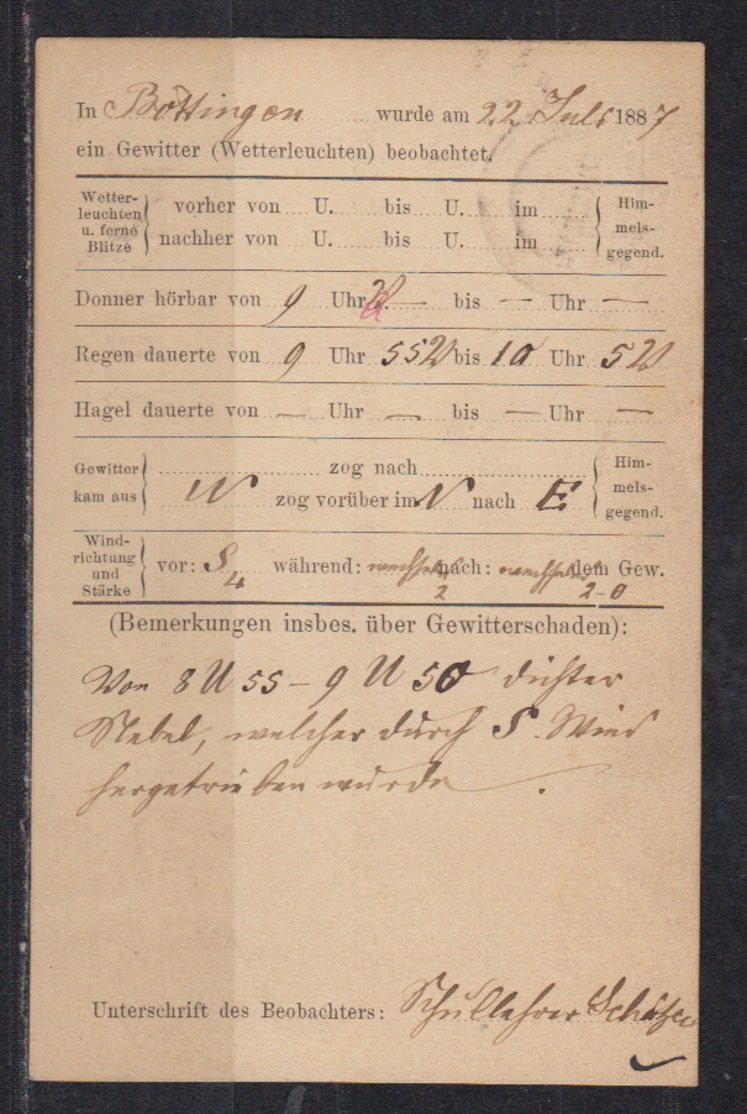 In Böttingen wurde am 22 Juli 1887
ein Gewitter (Wetterleuchten) beobachtet.
Wetter-
leuchten
u. ferne
Blitze
vorher von .... U. ...... bis ...... U. ...... im ......
nachher von U. bis U. im
Him-
mels-
gegend.
Donner hörbar von 9 Uhr — bis — Uhr —
Regen dauerte von 9 Uhr 55 bis 10 Uhr 5
Hagel dauerte von — Uhr — bis — Uhr —
Gewitter
kam aus
zog nach
W zog vorüber im N nach E
Him-
mels-
gegend.
Wind-
richtung
und
Stärke
vor: S 4 während: wechselnd 2 nach: wechselnd 2-0 dem Gew.
(Bemerkungen insbes. über Gewitterschaden):
Von 8 U 55 – 9 U 50 dichter
Nebel, welcher durch S. Wind
hergetrieben wurde.
Unterschrift des Beobachters: Schullehrer